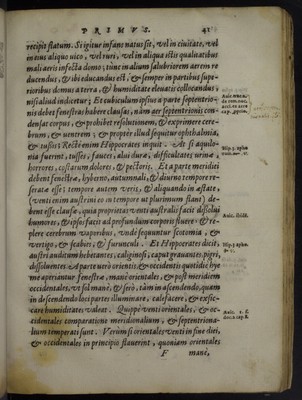 PRIMVS. 41
recipit statum. Si igitur infans natus sit, vel in civitate, vel
in eius aliquo vico, vel ruri, vel in aliqua istis qualitatibus
mali aeris infecta domo; tunc in alium salubriorem aerem re
ducendus, & ibi educandus est; & semper in partibus supe-
rioribus domus a terra, & humiditate elevatis collocandus;
nisi aliud indicetur; Et cubiculum ipsius a parte septentrio-
nis debet fenestras habere clausas, nam aer septentrionis con
densat corpus, & prohibet resolutionem, & exprimere cere-
brum, & ventrem; & propter illud sequitur ophthalmia,
& tussis: Recte enim Hippocrates inquit. At si aquilo-
nia fuerint, tusses, fauces, alvi durae, difficultates urinae,
horrores, costarum dolores & pectoris. Et a parte meridiei
debent fenestrae, hyberno, autumnali, & diurno tempore re-
seratae esse; tempore autem veris, & aliquando in aestate
(venti enim austrini eo tempore ut plurimum flant) de-
bent esse clausae, quia proprietas venti australis facit dissolui
humores, & ipsos facit ad profundum corporis fluere & re-
plere cerebrum vaporibus, unde sequuntur scotomia, &
vertigo, & scabies, & furunculi. Et Hippocrates dicit,
austri auditum hebetantes, caliginosi, caput gravantes, pigri,
dissolventes. A parte vero orientis & occidentis quotidie hye
me aperiantur fenestrae, mane orientales, & post meridiem
occidentales, vel sol mane, & sero, tam in ascendendo, quam
in descendendo loci partes illuminare, calefacere, & exsic-
care humiditates valeat. Quippe venti orientales, & oc-
cidentales comparatione meridionalium, & septentriona-
lium temperati sunt. Verum si orientales venti in fine diei,
& occidentales in principio fluerint, quoniam orientales
F mane,
Hip. 3. apho
Avic. ibidem.
Hip. 3. apho